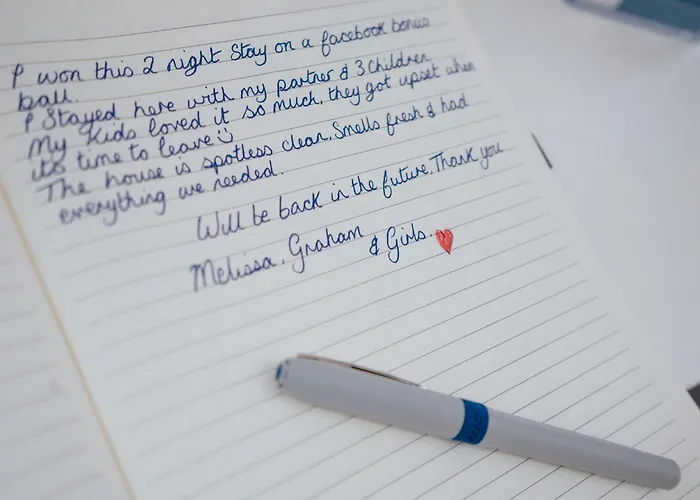 I won this 2 night Stay on a facebook bonus
ball.
I Stayed here with my partner & 3 Children
My Kids loved it so much, they got upset when
its time to leave ☺
The house is spotless clean. Smells fresh & had
everything we needed.
Will be back in the future. Thank you
Melissa, Graham & Girls. ♥